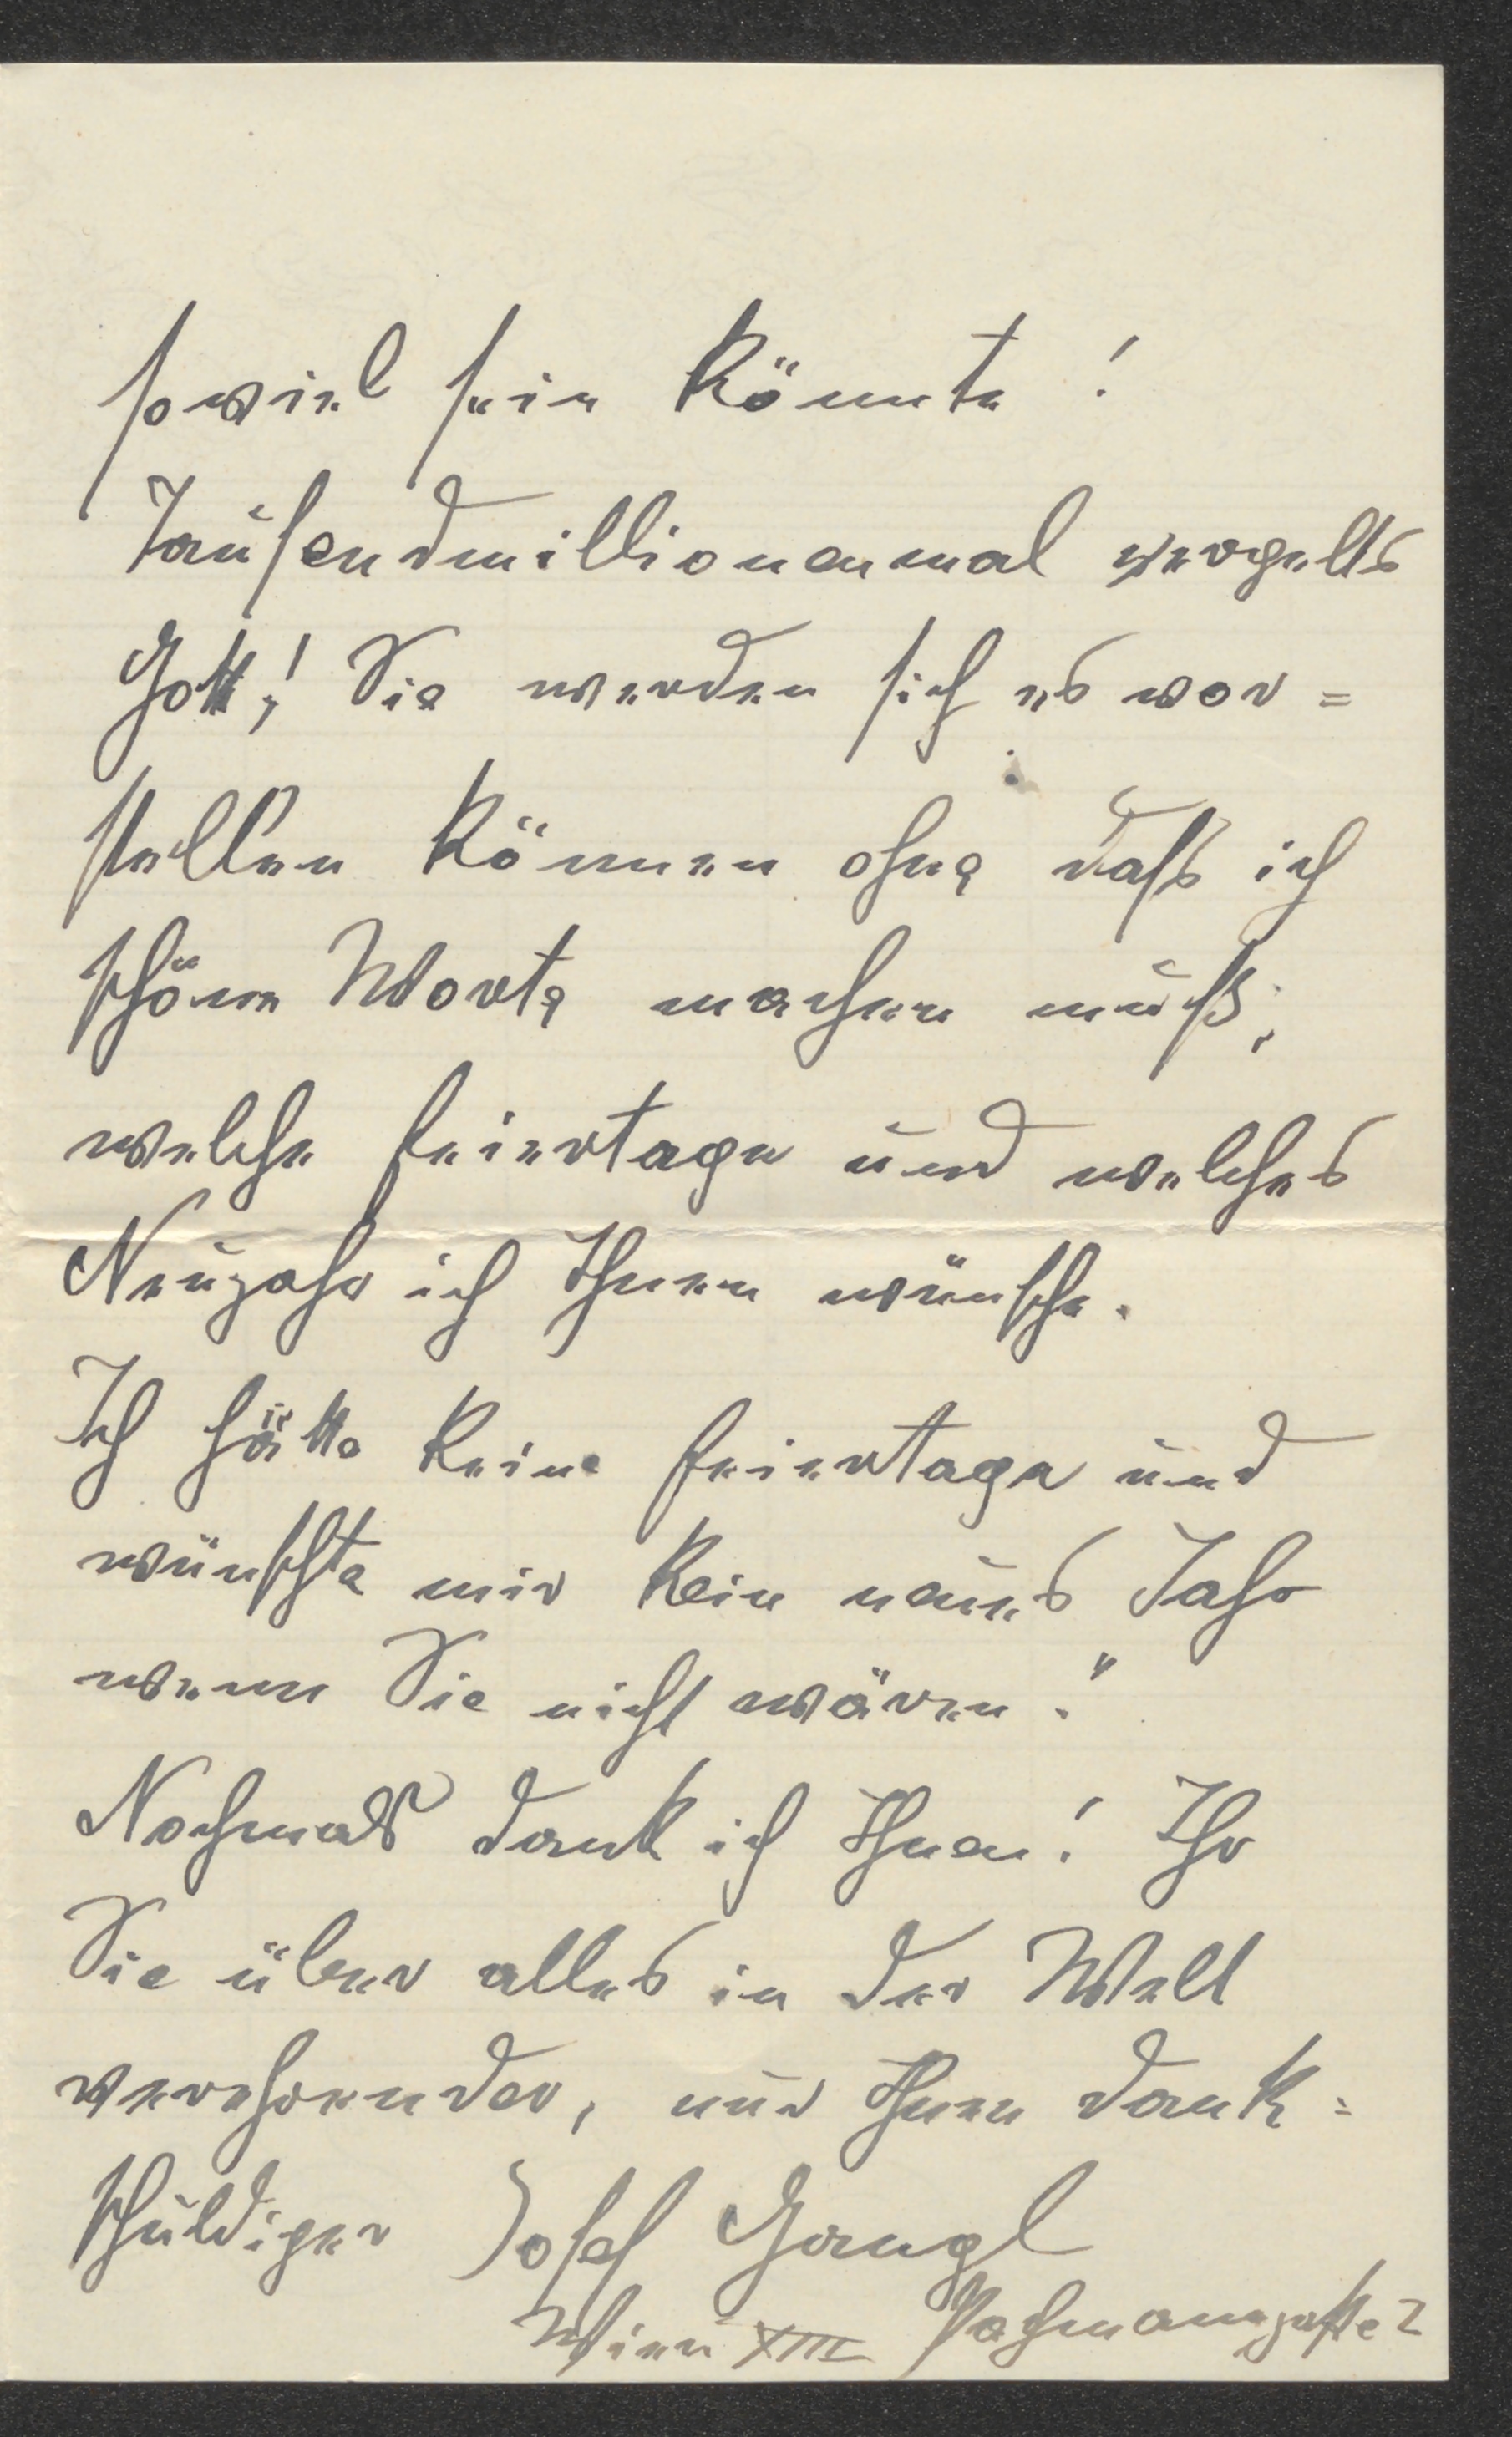 soviel sein könnte!
Tausendmillionenmal vergelts
Gott! Sie werden sich es vor=
stellen können ohne dass ich
schöne Worte machen muß,
welche Feiertage und welches
Neujahr ich Ihnen wünsche.
Ich hätte keine Feiertage und
wünschte mir kein neues Jahr
wenn Sie nicht wären."
Nochmals dank ich Ihnen! Ihr
Sie über alles in der Welt
verehrender, nur Ihnen dank=
schuldiger Josef Gangl
Wien XIII